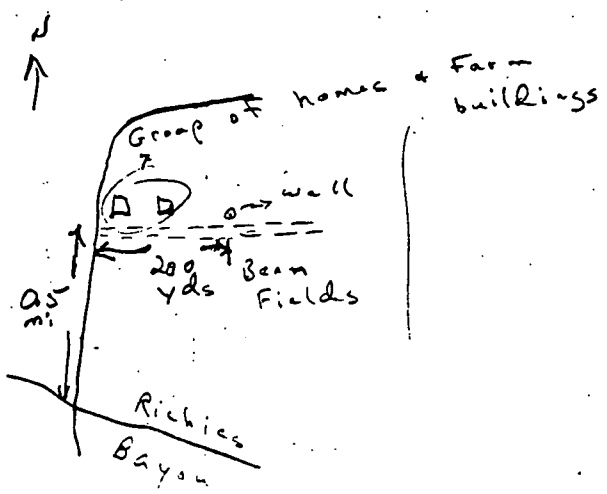 N
Group of homes & Farm
buildings
→ well
200
yds
Bean
Fields
0.5
mi
Richies
Bayou